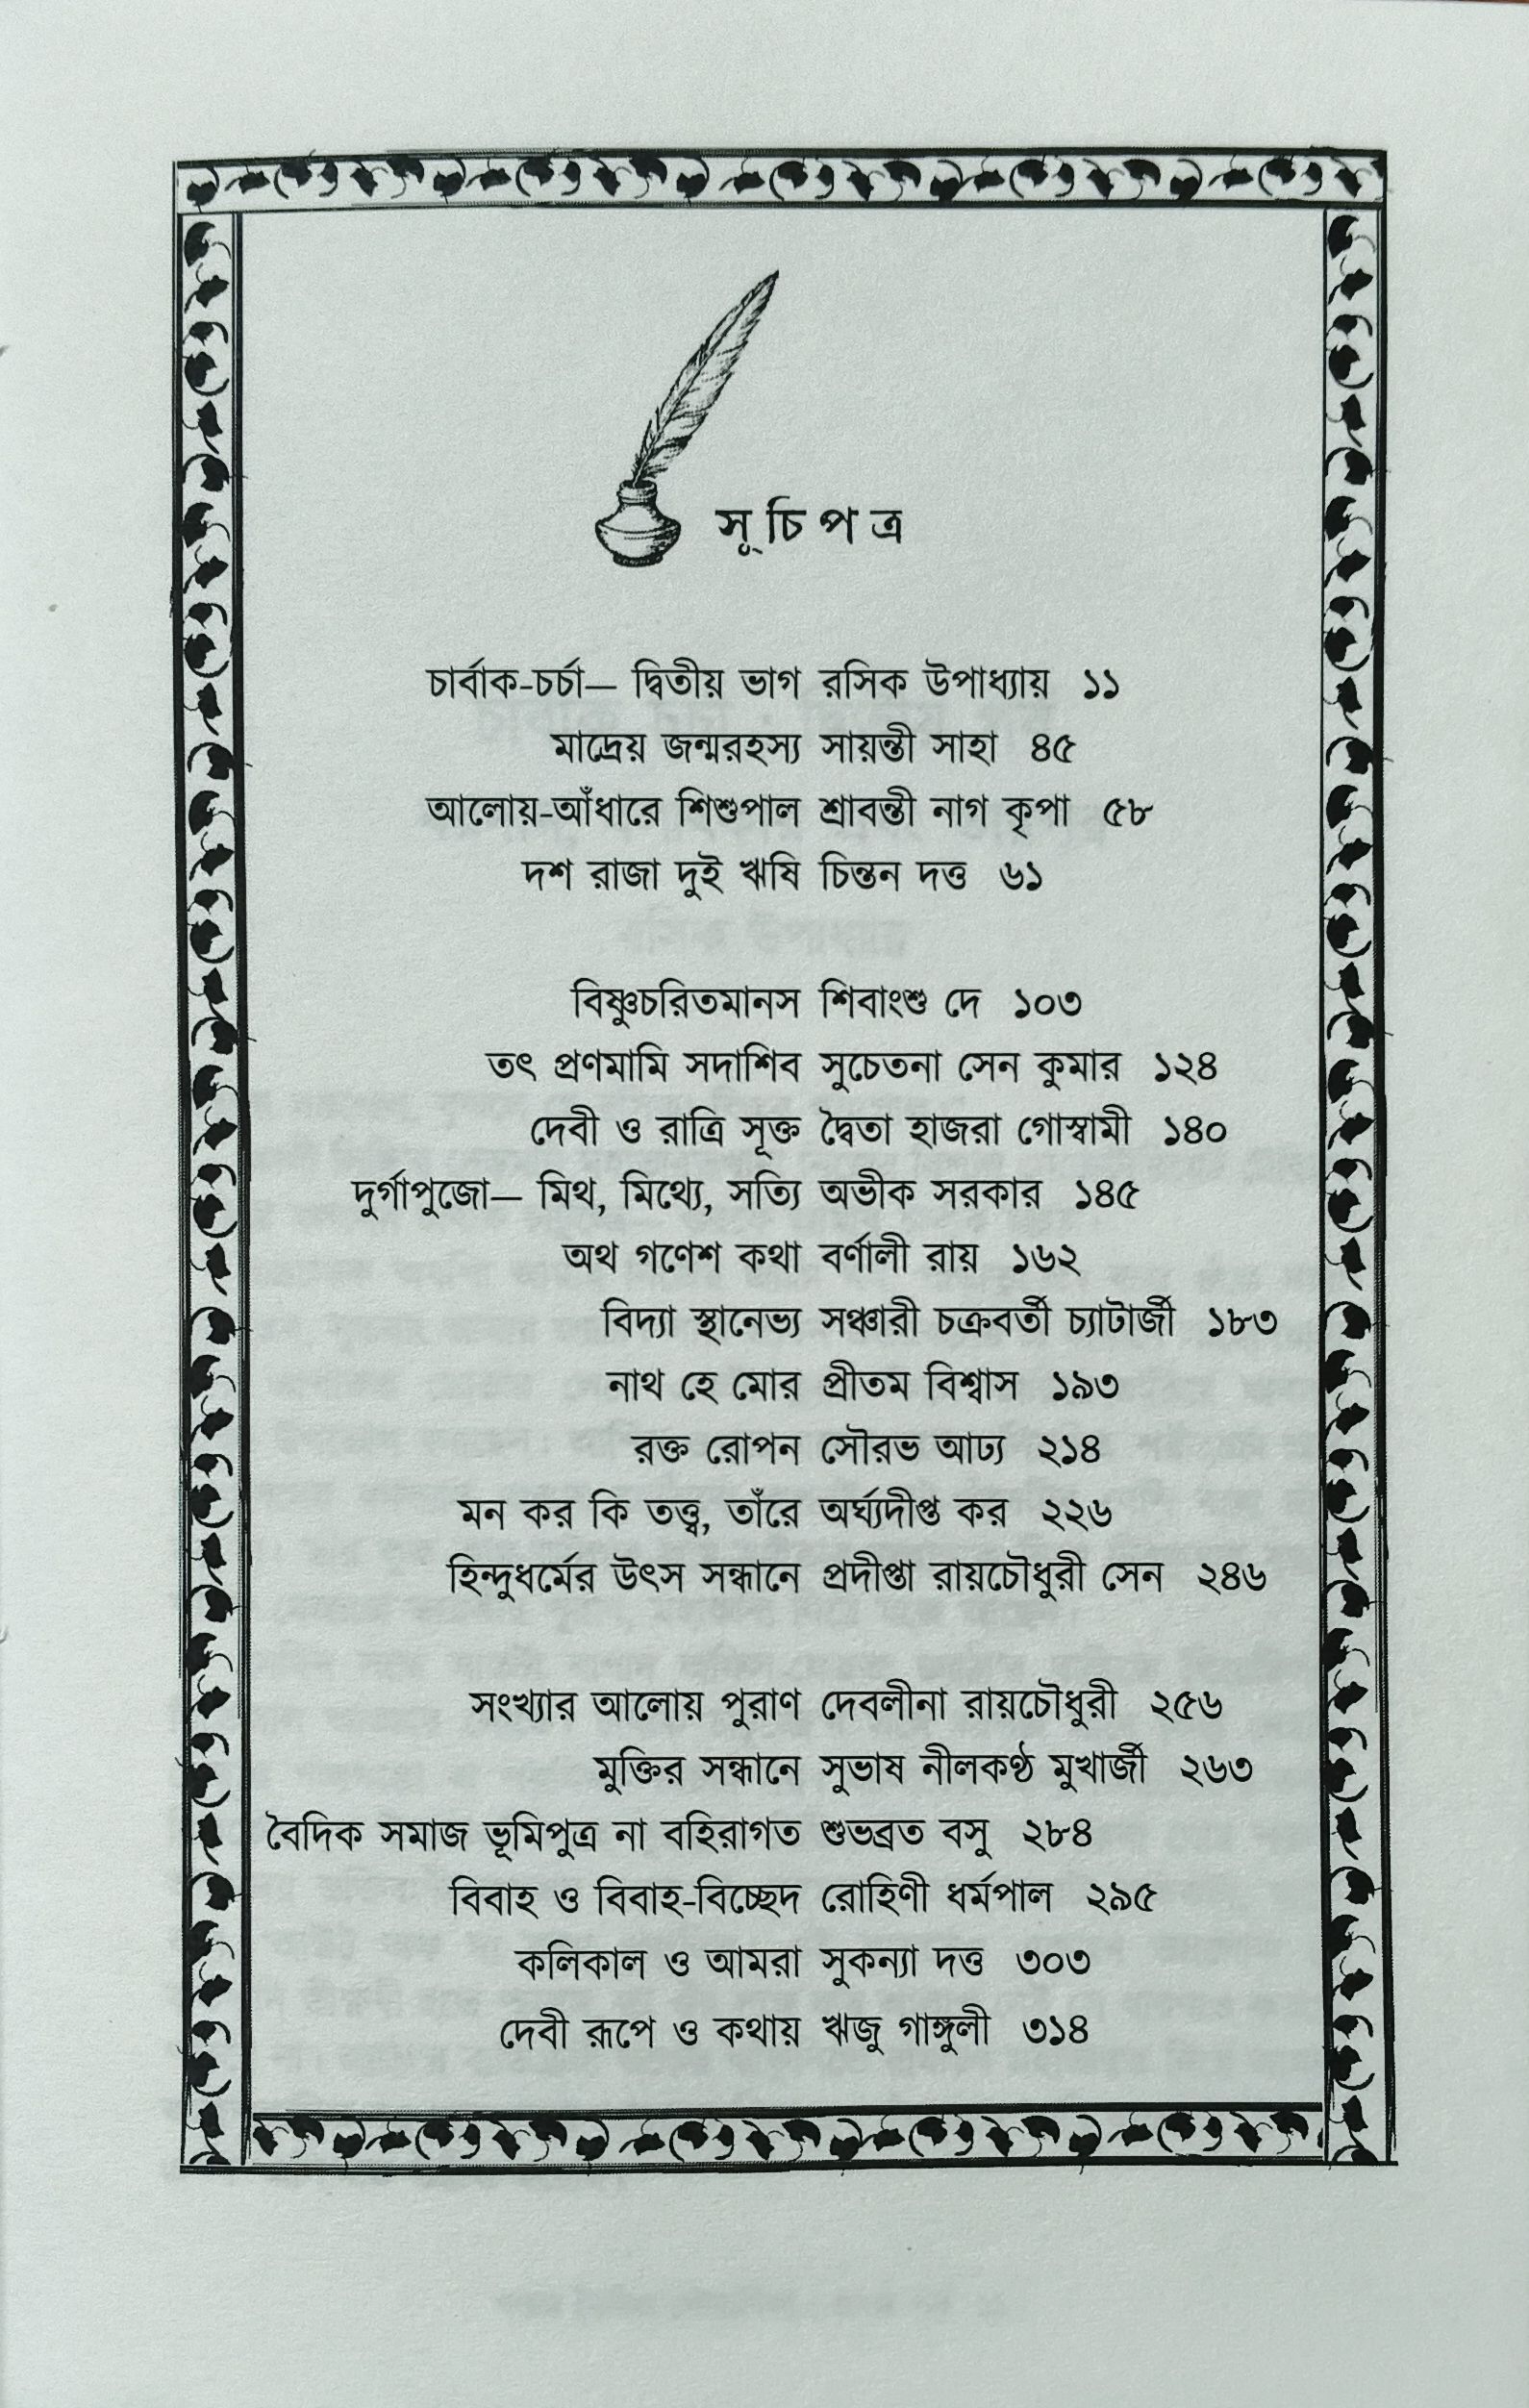 সূচিপত্র
চার্বাক-চর্চা— দ্বিতীয় ভাগ রসিক উপাধ্যায় ১১
মাদ্রেয় জন্মরহস্য সায়ন্তী সাহা ৪৫
আলোয়-আঁধারে শিশুপাল শ্রাবন্তী নাগ কৃপা ৫৮
দশ রাজা দুই ঋষি চিন্তন দত্ত ৬১
বিষ্ণুচরিতমানস শিবাংশু দে ১০৩
তৎ প্রণমামি সদাশিব সুচেতনা সেন কুমার ১২৪
দেবী ও রাত্রি সূক্ত দ্বৈতা হাজরা গোস্বামী ১৪০
দুর্গাপুজো— মিথ, মিথ্যে, সত্যি অভীক সরকার ১৪৫
অথ গণেশ কথা বর্ণালী রায় ১৬২
বিদ্যা স্থানেভ্য সঞ্চারী চক্রবর্তী চ্যাটার্জী ১৮৩
নাথ হে মোর প্রীতম বিশ্বাস ১৯৩
রক্ত রোপন সৌরভ আঢ্য ২১৪
মন কর কি তত্ত্ব, তাঁরে অর্ঘ্যদীপ্ত কর ২২৬
হিন্দুধর্মের উৎস সন্ধানে প্রদীপ্তা রায়চৌধুরী সেন ২৪৬
সংখ্যার আলোয় পুরাণ দেবলীনা রায়চৌধুরী ২৫৬
মুক্তির সন্ধানে সুভাষ নীলকণ্ঠ মুখার্জী ২৬৩
বৈদিক সমাজ ভূমিপুত্র না বহিরাগত শুভব্রত বসু ২৮৪
বিবাহ ও বিবাহ-বিচ্ছেদ রোহিণী ধর্মপাল ২৯৫
কলিকাল ও আমরা সুকন্যা দত্ত ৩০৩
দেবী রূপে ও কথায় ঋজু গাঙ্গুলী ৩১৪